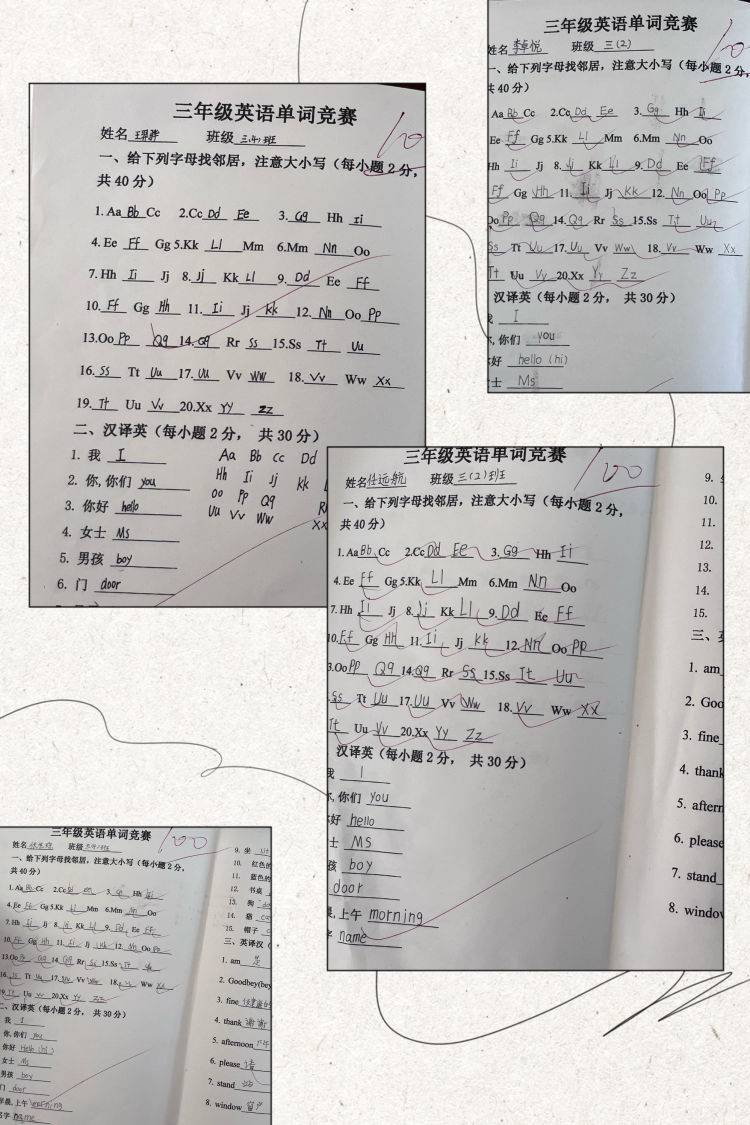 三年级英语单词竞赛
姓名 班级 三(1)班
一、给下列字母找邻居，注意大小写（每小题2分，
共40分）
1. Aa Bb Cc 2.Cc Dd Ee 3. Gg Hh Ii
4. Ee Ff Gg 5.Kk Ll Mm 6.Mm Nn Oo
7. Hh Ii Jj 8. Jj Kk Ll 9. Dd Ee Ff
10. Ff Gg Hh 11. Ii Jj Kk 12. Nn Oo Pp
13.Oo Pp Qq 14. Qq Rr Ss 15.Ss Tt Uu
16. Ss Tt Uu 17. Uu Vv Ww 18. Vv Ww Xx
19. Tt Uu Vv 20.Xx Yy Zz
二、汉译英（每小题2分， 共30分）
1. 我 I
2. 你, 你们 you
3. 你好 hello
4. 女士 Ms
5. 男孩 boy
6. 门 door
Aa Bb Cc Dd
Hh Ii Jj Kk
Oo Pp Qq
Uu Vv Ww Xx
三年级英语单词竞赛
姓名 李卓悦 班级 三(2)
一、给下列字母找邻居，注意大小写（每小题2分，
共40分）
Aa Bb Cc 2.Cc Dd Ee 3. Gg Hh Ii
Ee Ff Gg 5.Kk Ll Mm 6.Mm Nn Oo
Hh Ii Jj 8. Jj Kk Ll 9. Dd Ee Ff
Ff Gg Hh 11. Ii Jj Kk 12. Nn Oo Pp
Oo Pp Qq 14. Qq Rr Ss 15.Ss Tt Uu
Ss Tt Uu 17. Uu Vv Ww 18. Vv Ww Xx
Tt Uu Vv 20.Xx Yy Zz
汉译英（每小题2分， 共30分）
I
你们 you
好 hello (hi)
士 Ms
三年级英语单词竞赛
姓名 任远航 班级 三(2)班
100
一、给下列字母找邻居，注意大小写（每小题2分，
共40分）
1. Aa Bb Cc 2.Cc Dd Ee 3. Gg Hh Ii
4. Ee Ff Gg 5.Kk Ll Mm 6.Mm Nn Oo
7. Hh Ii Jj 8. Jj Kk Ll 9. Dd Ee Ff
10. Ff Gg Hh 11. Ii Jj Kk 12. Nn Oo Pp
3.Oo Pp Qq 14. Qq Rr Ss 15.Ss Tt Uu
Ss Tt Uu 17. Uu Vv Ww 18. Vv Ww Xx
Tt Uu Vv 20.Xx Yy Zz
汉译英（每小题2分， 共30分）
我 I
你们 you
好 hello
士 MS
孩 boy
door
上午 morning
name
9.
10.
11.
12.
13.
14.
15.
三、
1. am
2. Goo
3. fine
4. thank
5. aftern
6. please
7. stand
8. window
三年级英语单词竞赛
姓名 班级
100
一、给下列字母找邻居，注意大小写（每小题2分，
共40分）
1. Aa Bb Cc 2.Cc 3. Hh
4. Ee Ff Gg 5.Kk Ll Mm 6.Mm Nn Oo
7. Hh Ii Jj 8. Jj Kk Ll 9. Dd Ee Ff
10. Ff Gg Hh 11. Ii Jj Kk 12. Nn Oo Pp
13.Oo Pp Qq 14. Qq Rr Ss 15.Ss Tt Uu
16. Ss Tt Uu 17. Uu Vv Ww 18. Vv Ww Xx
Tt Uu Vv 20.Xx Yy Zz
二、汉译英（每小题2分， 共30分）
我 I
你, 你们 you
你好 Hello (hi)
女士 Ms
男孩 boy
门 door
上午 morning
名字 name
9. 坐 sit
10. 红色的
11. 蓝色的
12. 书桌
13. 狗 do
14. 猫 ca
15. 帽子 c
三、英译汉（
1. am 是
2. Goodbey(bey
3. fine
4. thank 谢谢
5. afternoon 下午
6. please 请
7. stand 站
8. window 窗户